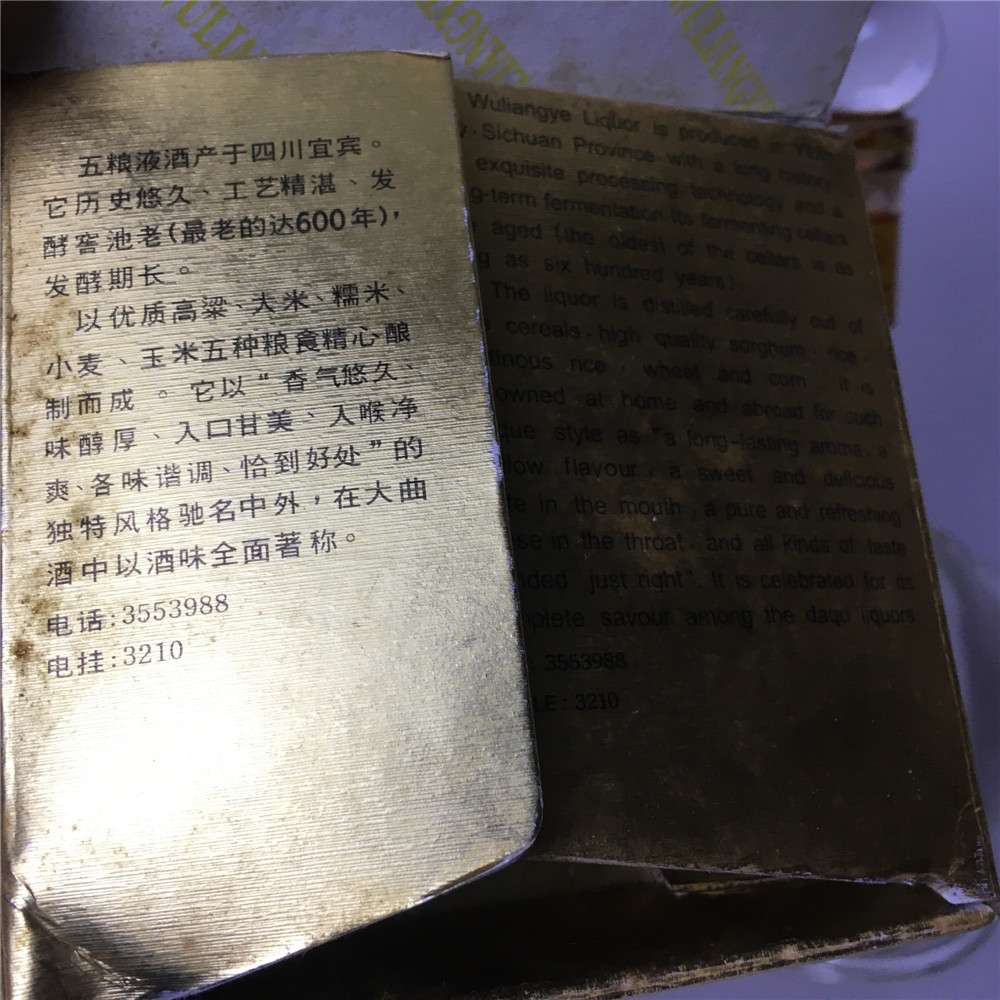 WULIANG
WULIANGYE
五粮液酒产于四川宜宾。
它历史悠久、工艺精湛、发
酵窖池老(最老的达600年),
发酵期长。
以优质高粱、大米、糯米、
小麦、玉米五种粮食精心酿
制而成。它以“香气悠久、
味醇厚、入口甘美、入喉净
爽、各味谐调、恰到好处”的
独特风格驰名中外,在大曲
酒中以酒味全面著称。
电话:3553988
电挂:3210
Wuliangye Liquor is produced in Yibin
y, Sichuan Province with a long history,
exquisite processing technology and a
g-term fermentation. Its fermenting cellars
aged (the oldest of the cellars is as
g as six hundred years).
The liquor is distilled carefully out of
cereals, high quality sorghum, rice,
tinous rice, wheat and corn. It is
owned at home and abroad for such
que style as "a long-lasting aroma, a
llow flavour, a sweet and delicious
te in the mouth, a pure and refreshing
se in the throat, and all kinds of taste
nded just right". It is celebrated for its
mplete savour among the daqu liquors
3553988
LE: 3210